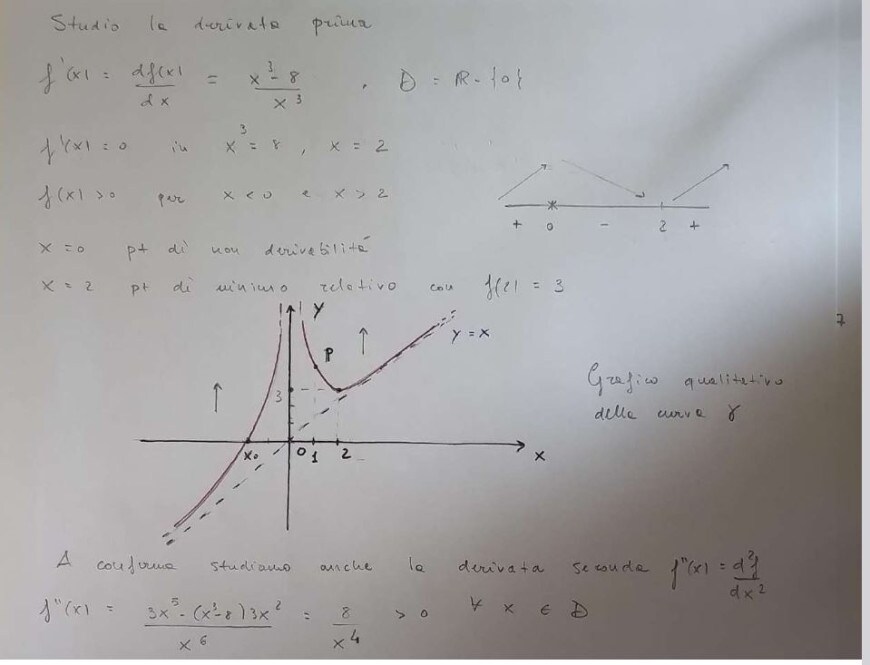 Studio la derivata prima
f'(x) = df(x)/dx = x³-8/x³ , D = R-{0}
f'(x) = 0 in x³ = 8 , x = 2
f(x) > 0 per x < 0 e x > 2
+ 0 - 2 +
x = 0 pt di non derivabilità
x = 2 pt di minimo relativo con f(2) = 3
7
y
P
y = x
3
Grafico qualitativo
della curva γ
x₀ 0 1 2 x
A conferma studiamo anche la derivata seconda f''(x) = d²f/dx²
f''(x) = 3x⁵-(x³-8)3x²/x⁶ = 8/x⁴ > 0 ∀ x ∈ D